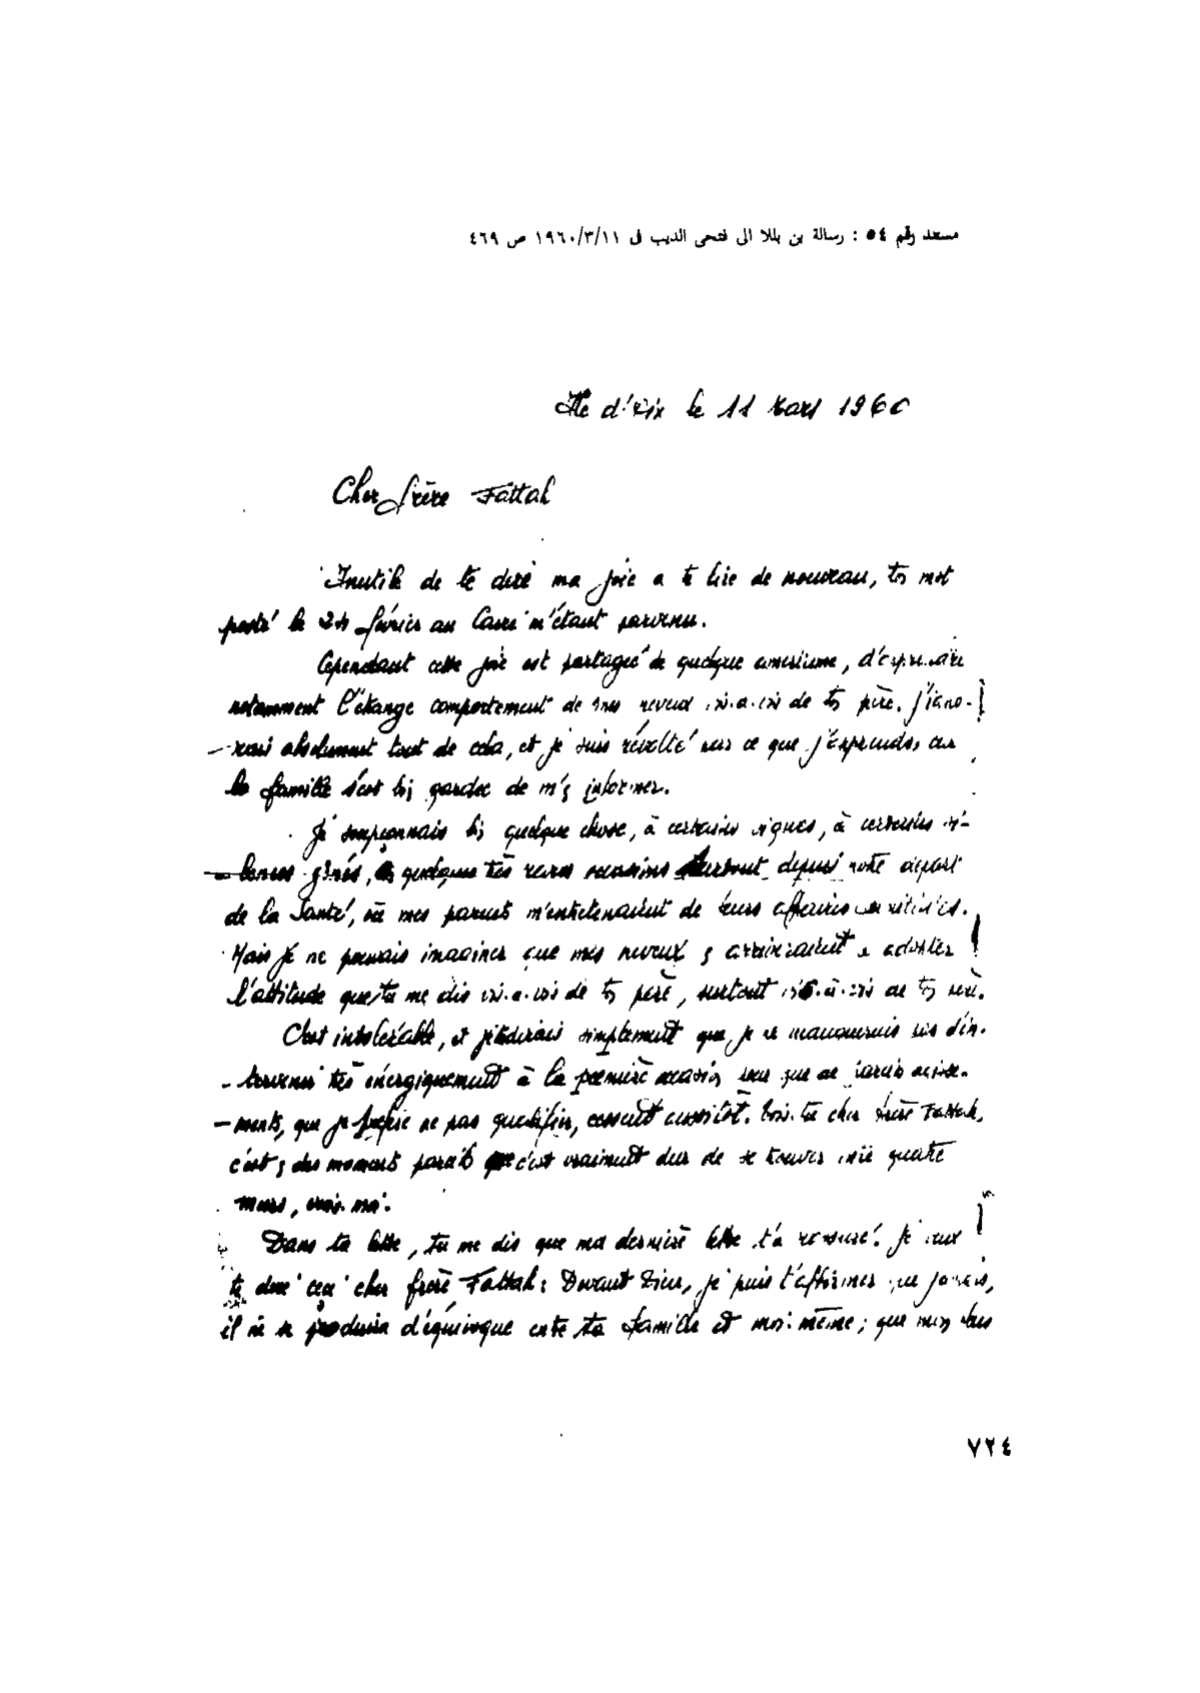 مستند رقم ٥٤ : رسالة بن بللا الى فتحى الديب فى ١٩٦٠/٣/١١ ص ٤٦٩
Ile d'Aix le 11 Mars 1960
Cher frère Fattah
Inutile de te dire ma joie a te lire de nouveau, ton mot
posté le 24 février au Caire m'étant parvenu.
Cependant cette joie est partagée de quelque amertume, d'apprendre
notamment l'étrange comportement de mes neveux vis-a-vis de ton père. J'igno-
-rais absolument tout de cela, et je suis révolté par ce que j'apprends, car
la famille s'est bien gardée de m'y informer.
Je soupçonnais bien quelque chose, à certains signes, à certains si-
-lences gênés, quelques très rares occasions surtout depuis notre départ
de la Santé, où mes parents m'entretenaient de leurs affaires
Mais je ne pouvais imaginer que mes neveux y arriveraient a adopter
l'attitude que tu me dis vis-a-vis de ton père, surtout vis-à-vis de ton père.
C'est intolérable, et je te dirais simplement que je ne manquerais pas d'in-
-tervenir très énergiquement à la première occasion pour que de pareils agisse-
-ments, que je préfère ne pas qualifier, cessent aussitôt. Vois-tu cher frère Fattah,
c'est à des moments pareils que c'est vraiment dur de se trouver entre quatre
murs, crois-moi.
Dans ta lettre, tu me dis que ma dernière lettre t'a rassuré. Je veux
te dire ceci cher frère Fattah : Devant Dieu, je puis t'affirmer que jamais,
il ne se produira d'équivoque entre ta famille et moi-même ; que mon
٧٢٤